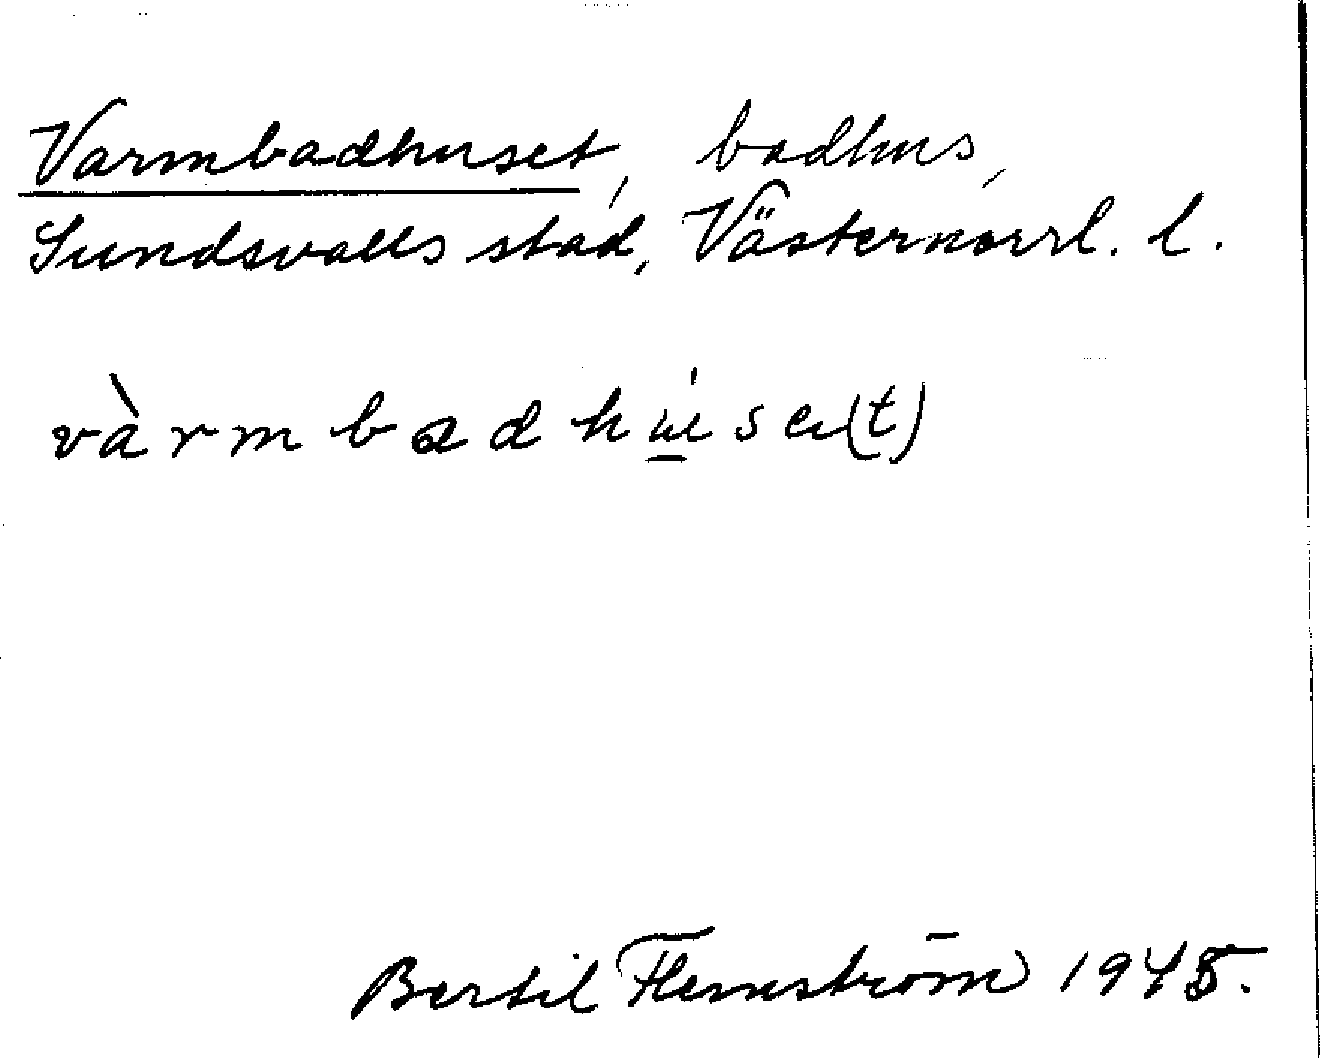 Varmbadhuset, badhus,
Sundsvalls stad, Västernorrl. l.
vàrmbadhu̲̍se(t)
Bertil Flemström 1945.